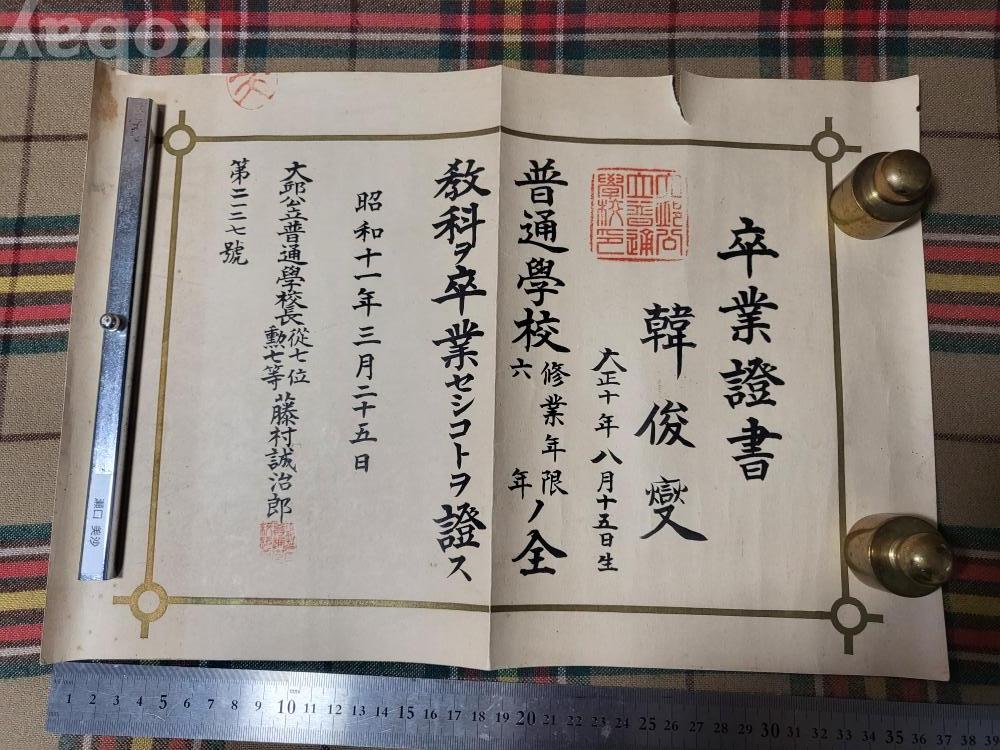 卒業證書
韓俊燮
大正十年八月十五日生
大邱公
立普通
學校印
普通學校修業年限六年ノ全
教科ヲ卒業セシコトヲ證ス
昭和十一年三月二十五日
大邱公立普通學校長從七位勲七等藤村誠治郎
第二一二七號
瀬口 美沙
kobay
mm
1 2 3 4 5 6 7 8 9 10 11 12 13 14 15 16 17 18 19 20 21 22 23 24 25 26 27 28 29 30 31 32 33 34 35 36 37 38 39